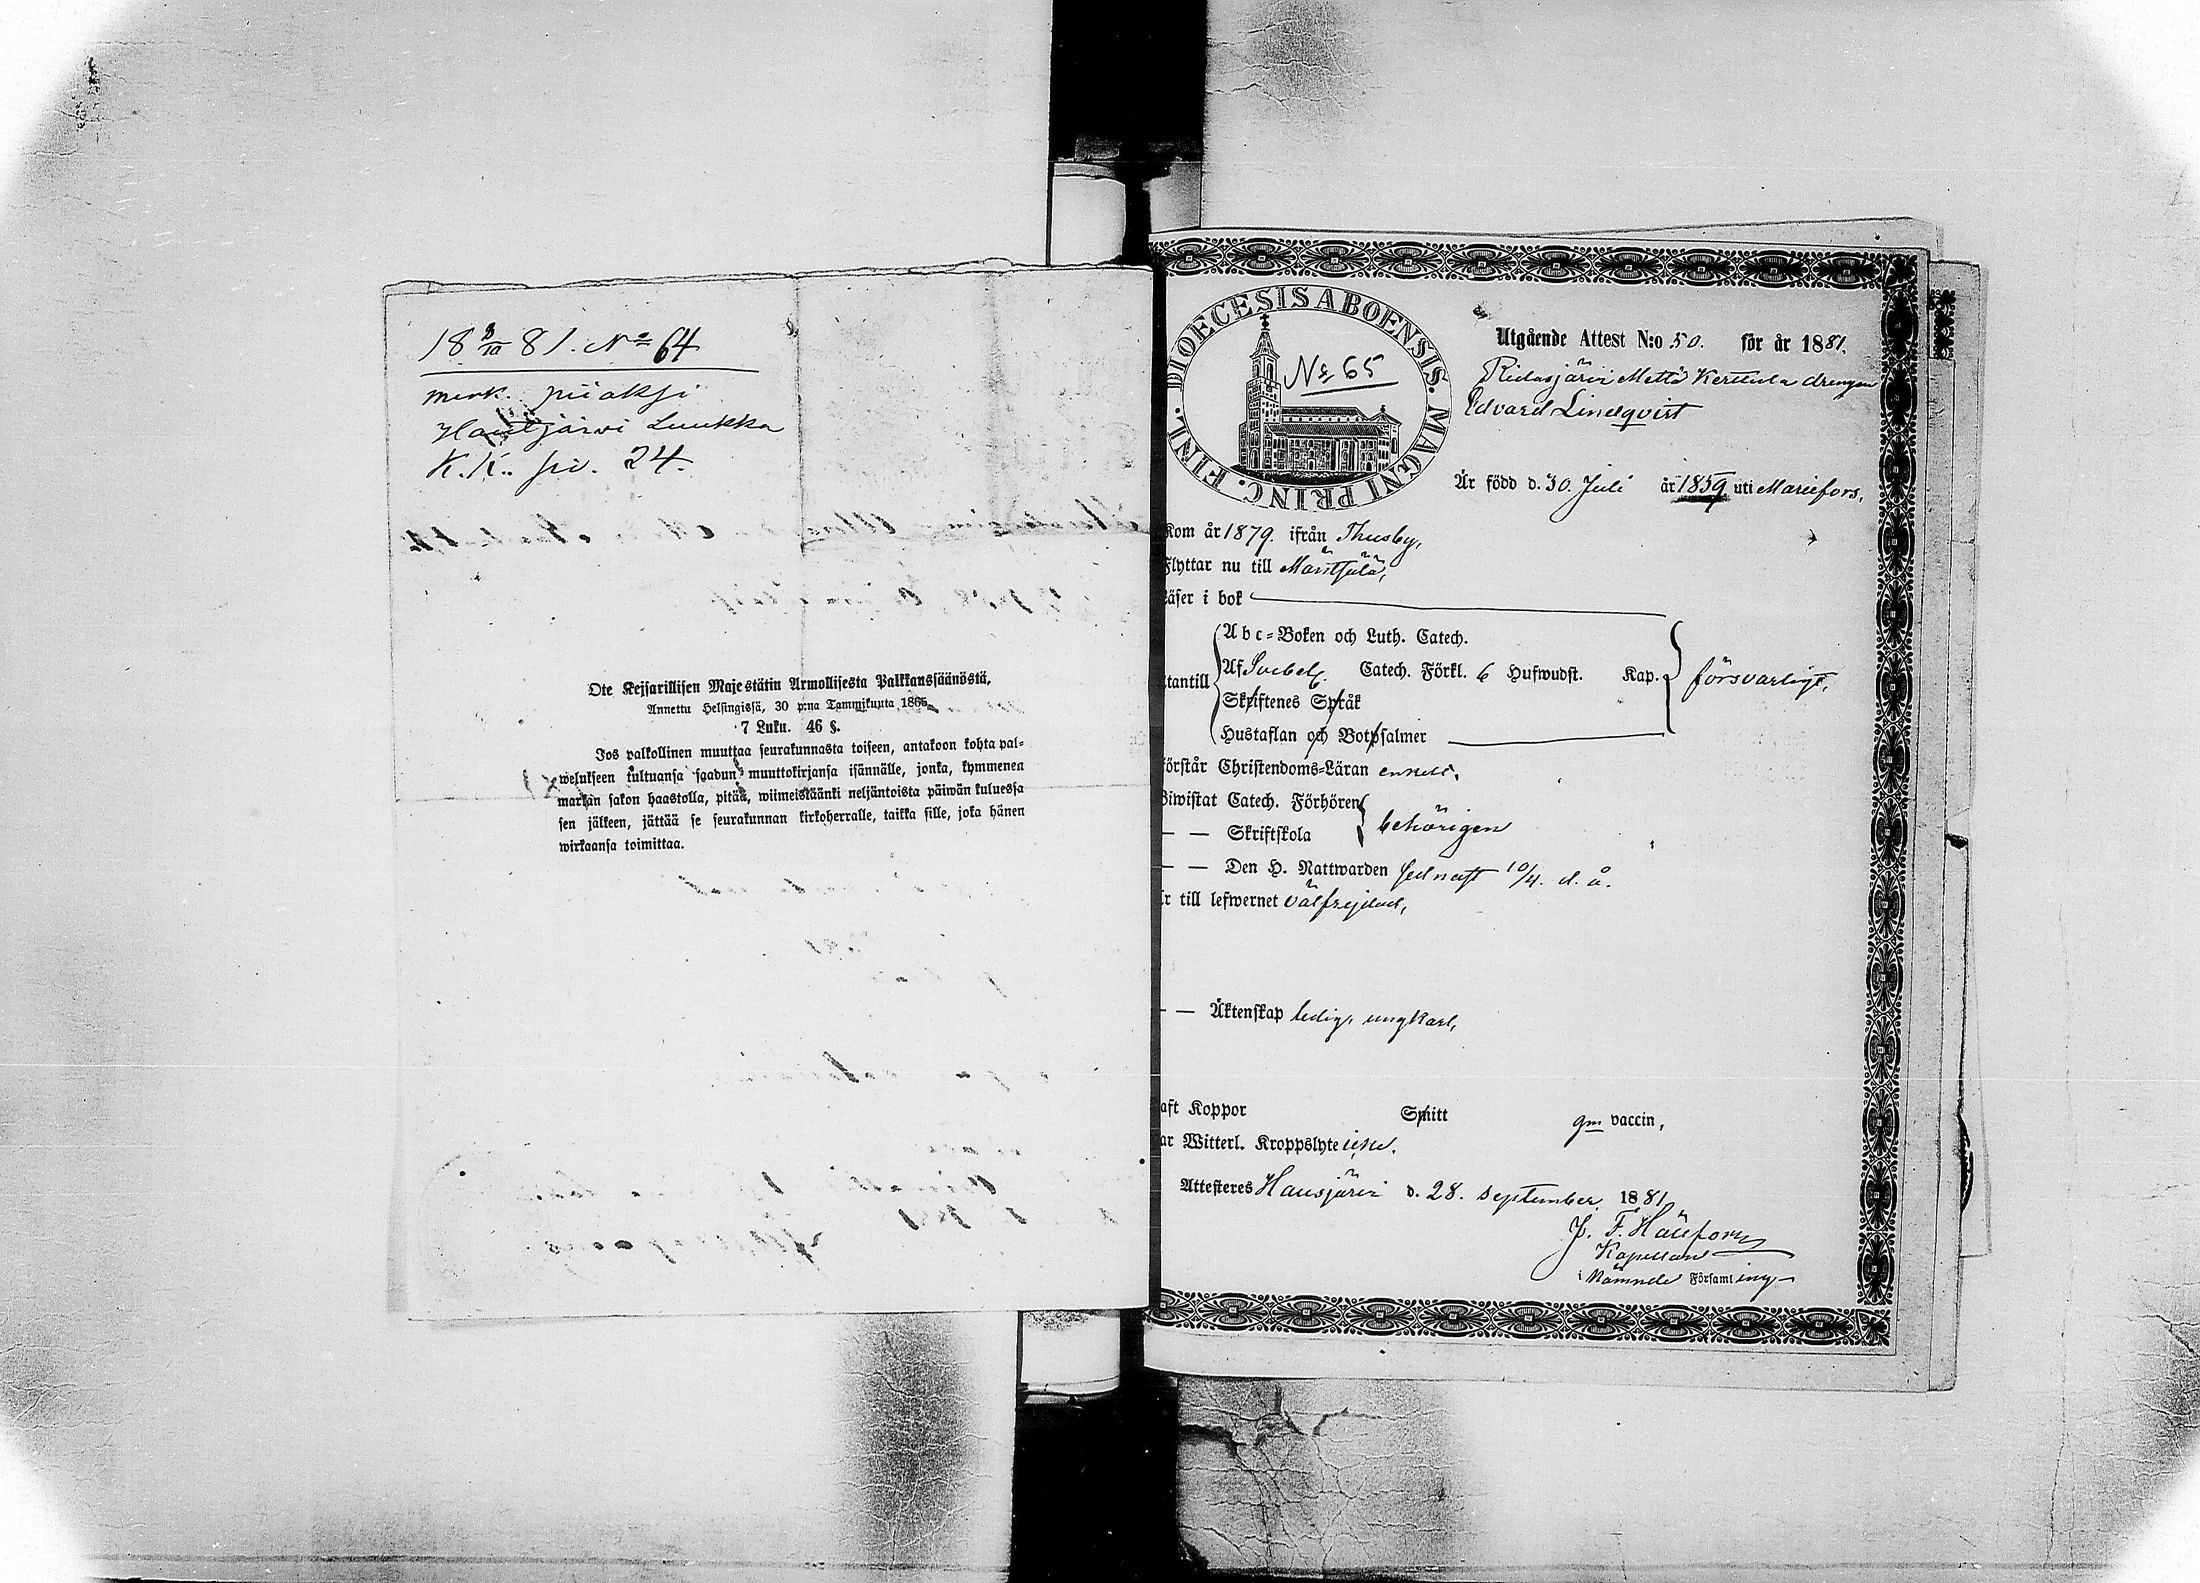 18 8/10 81. No 64
merk. piiaksi
Hausjärvi Luukka
K.K. siv. 24.
Ote Kejsarillisen Majestätin Armollisesta Palkkanssäänöstä,
Annettu Helsingissä, 30 p:na Tammikuuta 1865
7 Luku. 46 §.
Jos palkollinen muuttaa seurakunnasta toiseen, antakoon kohta pal-
welukseen tultuansa saadun muuttokirjansa isännälle, jonka, kymmenen
markan sakon haastolla, pitää, wiimeistäänki neljäntoista päiwän kuluessa
sen jälkeen, jättää se seurakunnan kirkoherralle, taikka sille, joka hänen
wirkaansa toimittaa.
DIOECESIS ABOENSIS. MAGNI PRINC. FINL.
No 65
Utgående Attest N:o 50. för år 1881.
Ridasjärvi Mattä Kerttula drengen
Edvard Lindqvist
Är född d. 30. Juli år 1859 uti Mariefors,
Kom år 1879. ifrån Thusby,
Flyttar nu till Mäntsälä,
Läser i bok
Abc-Boken och Luth. Catech.
Af Svebel. Catech. Förkl. 6 Hufwudst. Kap.
försvarligt,
tantill
Skriftenes Språk
Hustaflan och Botpsalmer
örstår Christendoms-Läran enkelt.
Biwistat Catech. Förhören
— — Skriftskola
behörigen
— — Den H. Nattwarden sednast 10/4. d. å.
r till lefwernet välfrejdad,
— — Äktenskap ledig, ungkarl,
aft Koppor Smitt gm vaccin,
ar Witterl. Kroppslyte icke.
Attesteres Hausjärvi d. 28. september 1881,
J. F. Hällfors
Kapellan
i nämnde Församling